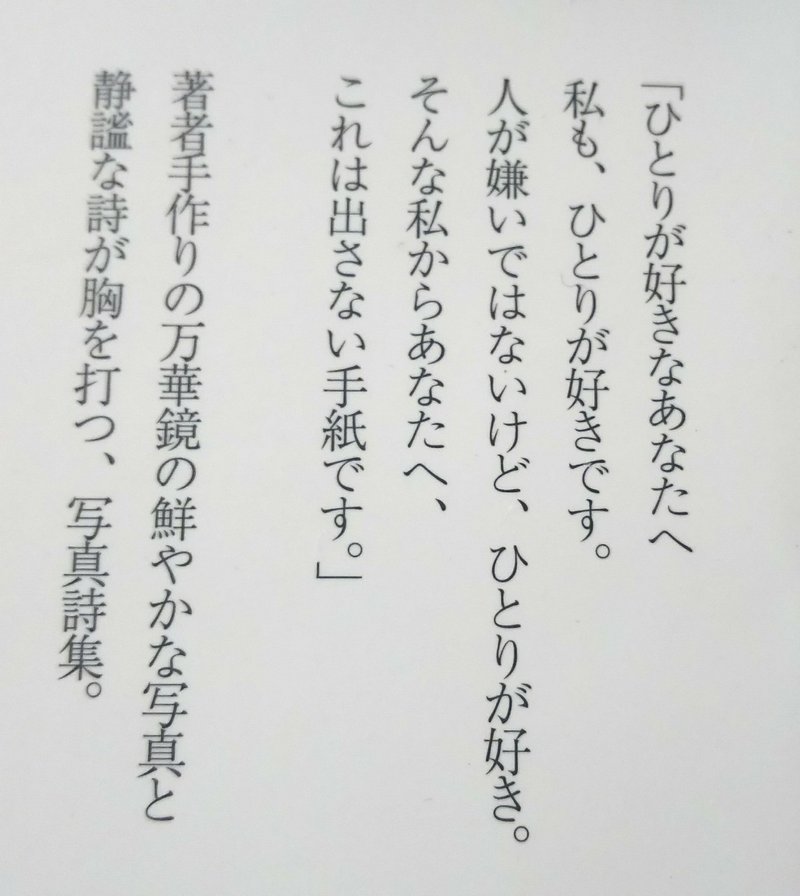 「ひとりが好きなあなたへ
私も、ひとりが好きです。
人が嫌いではないけど、ひとりが好き。
そんな私からあなたへ、
これは出さない手紙です。」
著者手作りの万華鏡の鮮やかな写真と
静謐な詩が胸を打つ、写真詩集。